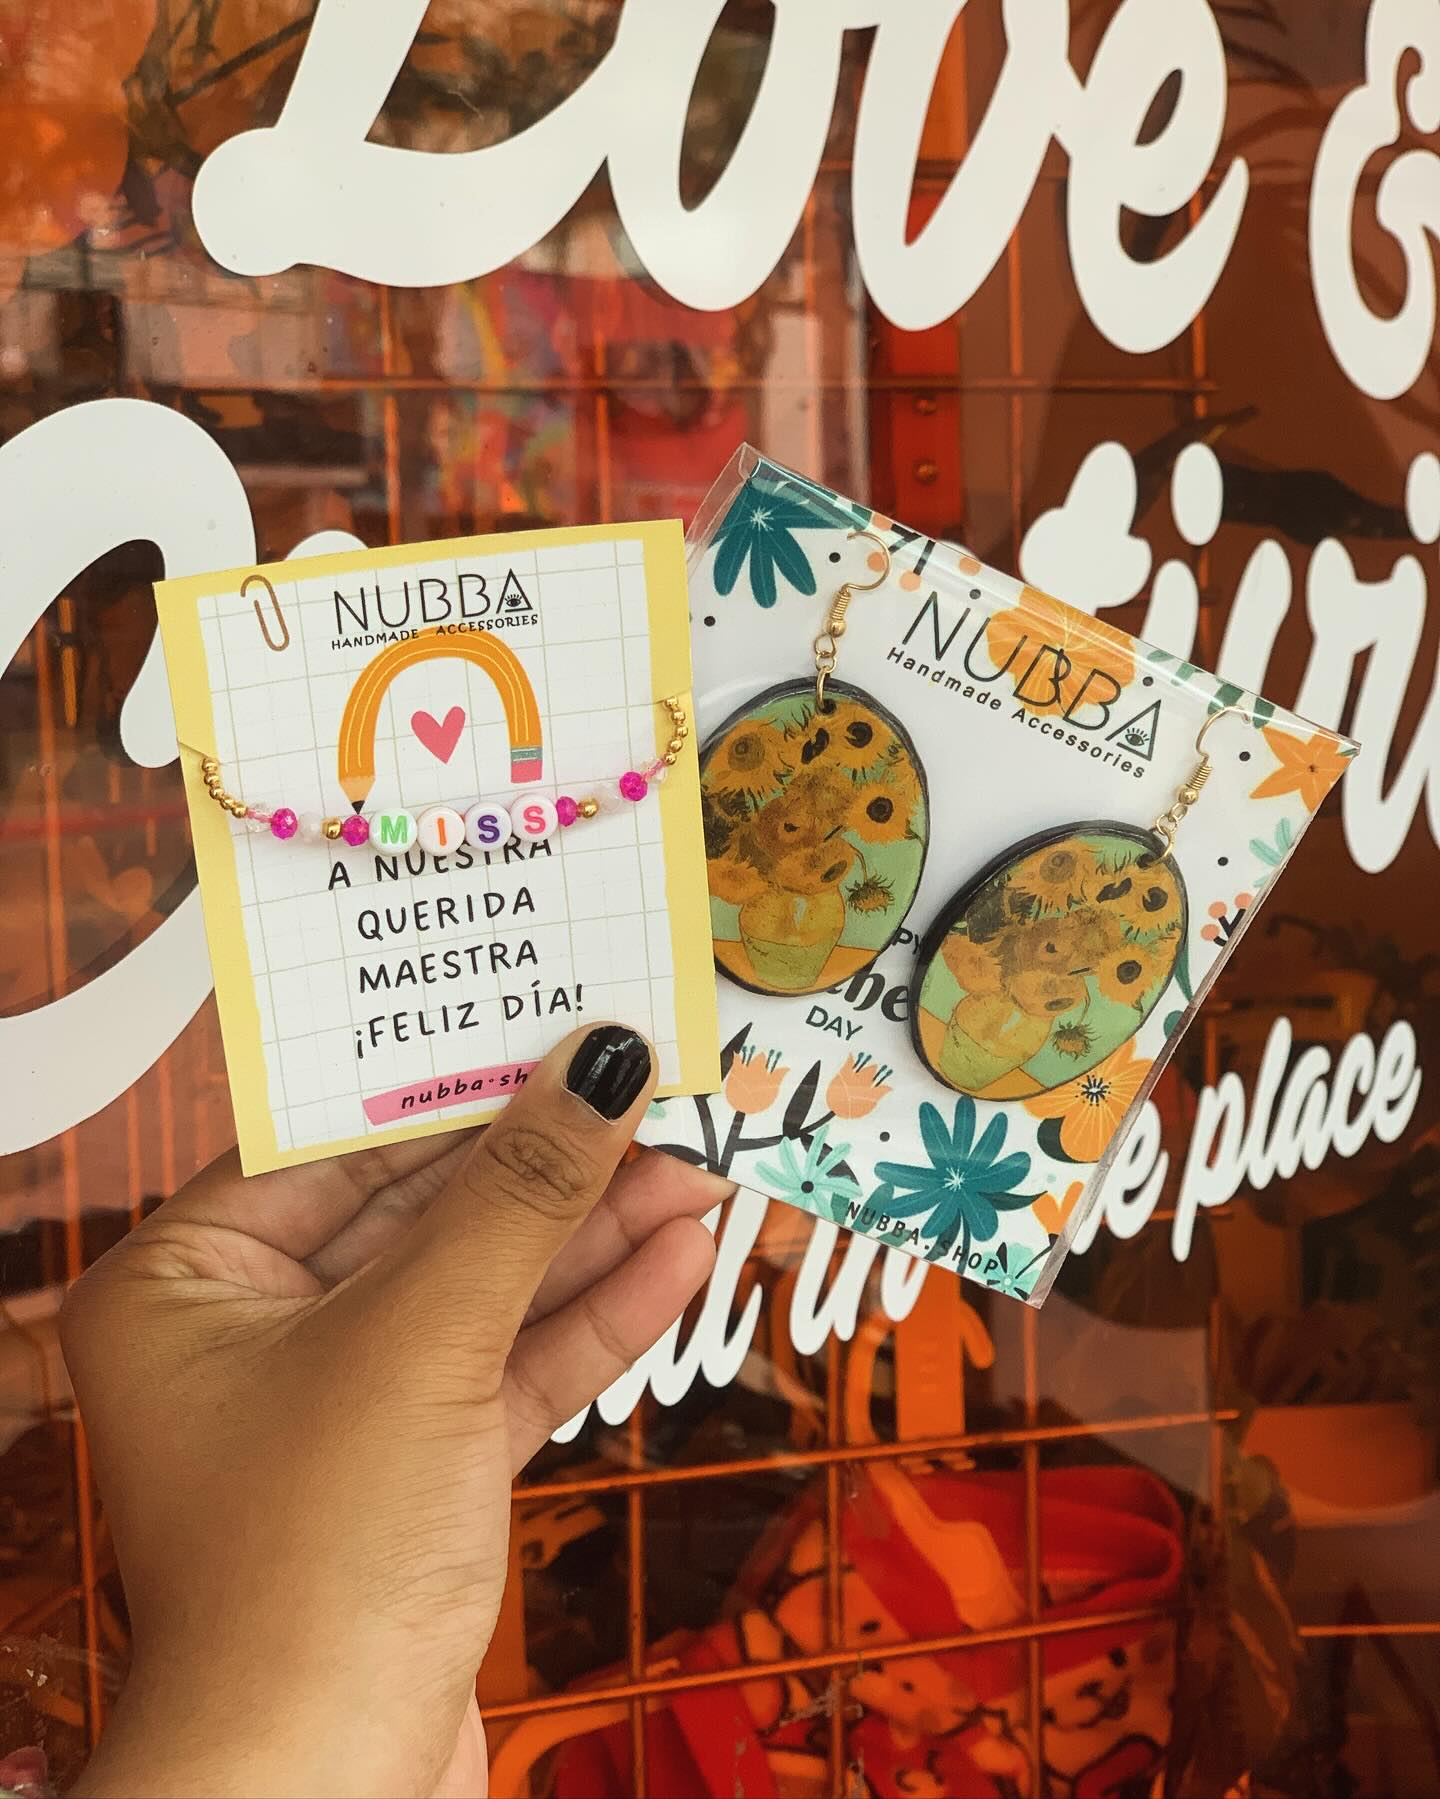 Love &
NUBBA
HANDMADE ACCESSORIES
MISS
A NUESTRA
QUERIDA
MAESTRA
¡FELIZ DÍA!
NUBBA
Handmade Accessories
DAY
NUBBA.SHOP
place